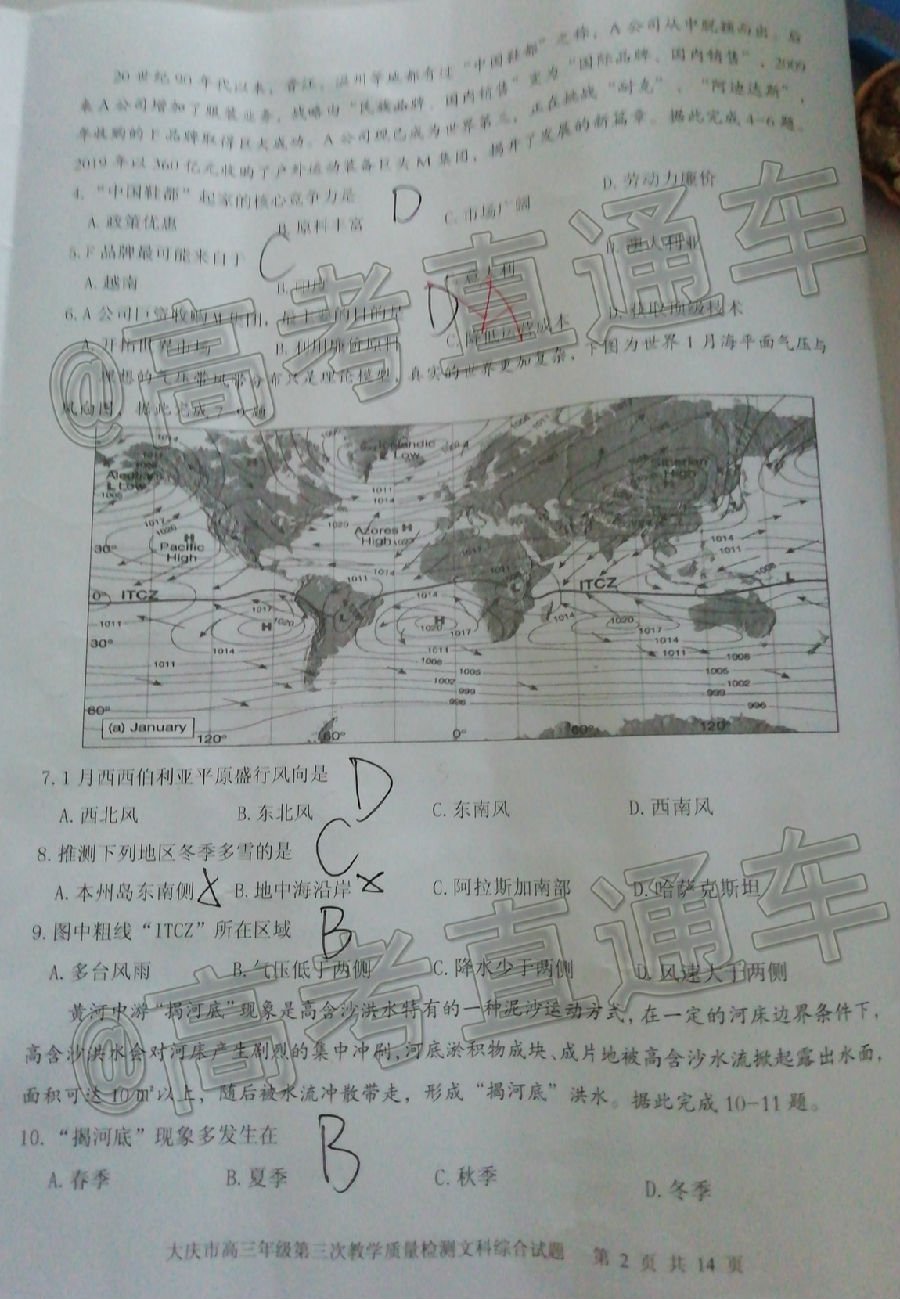 20世纪90年代以来，晋江、温州等地都有过“中国鞋都”之称，A公司从中脱颖而出。后
来A公司增加了服装业务，战略由“民族品牌、国内销售”变为“国际品牌、国内销售”，2009
年收购的F品牌取得巨大成功。A公司现已成为世界第三，正在挑战“耐克”、“阿迪达斯”，
2019年以360亿元收购了户外运动装备巨头M集团，揭开了发展的新篇章。据此完成4-6题。
4.“中国鞋都”起家的核心竞争力是 D
A.政策优惠 B.原料丰富 C.市场广阔 D.劳动力廉价
5.F品牌最可能来自于 C
A.越南 B.印度 C.意大利 D.澳大利亚
6.A公司巨资收购M集团，最主要的目的是 D A
A.开拓世界市场 B.利用廉价原料 C.降低运营成本 D.获取顶级技术
理想的气压带风带分布只是理论模型，真实的世界更加复杂，下图为世界1月海平面气压与
风向图，据此完成7-9题
Aleutian L Low
Icelandic L Low
Siberian High H
H Pacific High
Azores H High
30°
0° ITCZ
ITCZ
30°
60°
(a) January
120° 60° 0° 60° 120°
7.1月西西伯利亚平原盛行风向是 D
A.西北风 B.东北风 C.东南风 D.西南风
8.推测下列地区冬季多雪的是 C
A.本州岛东南侧 B.地中海沿岸 C.阿拉斯加南部 D.哈萨克斯坦
9.图中粗线“ITCZ”所在区域 B
A.多台风雨 B.气压低于两侧 C.降水少于两侧 D.风速大于两侧
黄河中游“揭河底”现象是高含沙洪水特有的一种泥沙运动方式，在一定的河床边界条件下，
高含沙洪水会对河床产生剧烈的集中冲刷，河底淤积物成块、成片地被高含沙水流掀起露出水面，
面积可达10㎡以上，随后被水流冲散带走，形成“揭河底”洪水。据此完成10-11题。
10.“揭河底”现象多发生在 B
A.春季 B.夏季 C.秋季 D.冬季
大庆市高三年级第三次教学质量检测文科综合试题 第 2 页 共 14 页
@高考直通车
@高考直通车